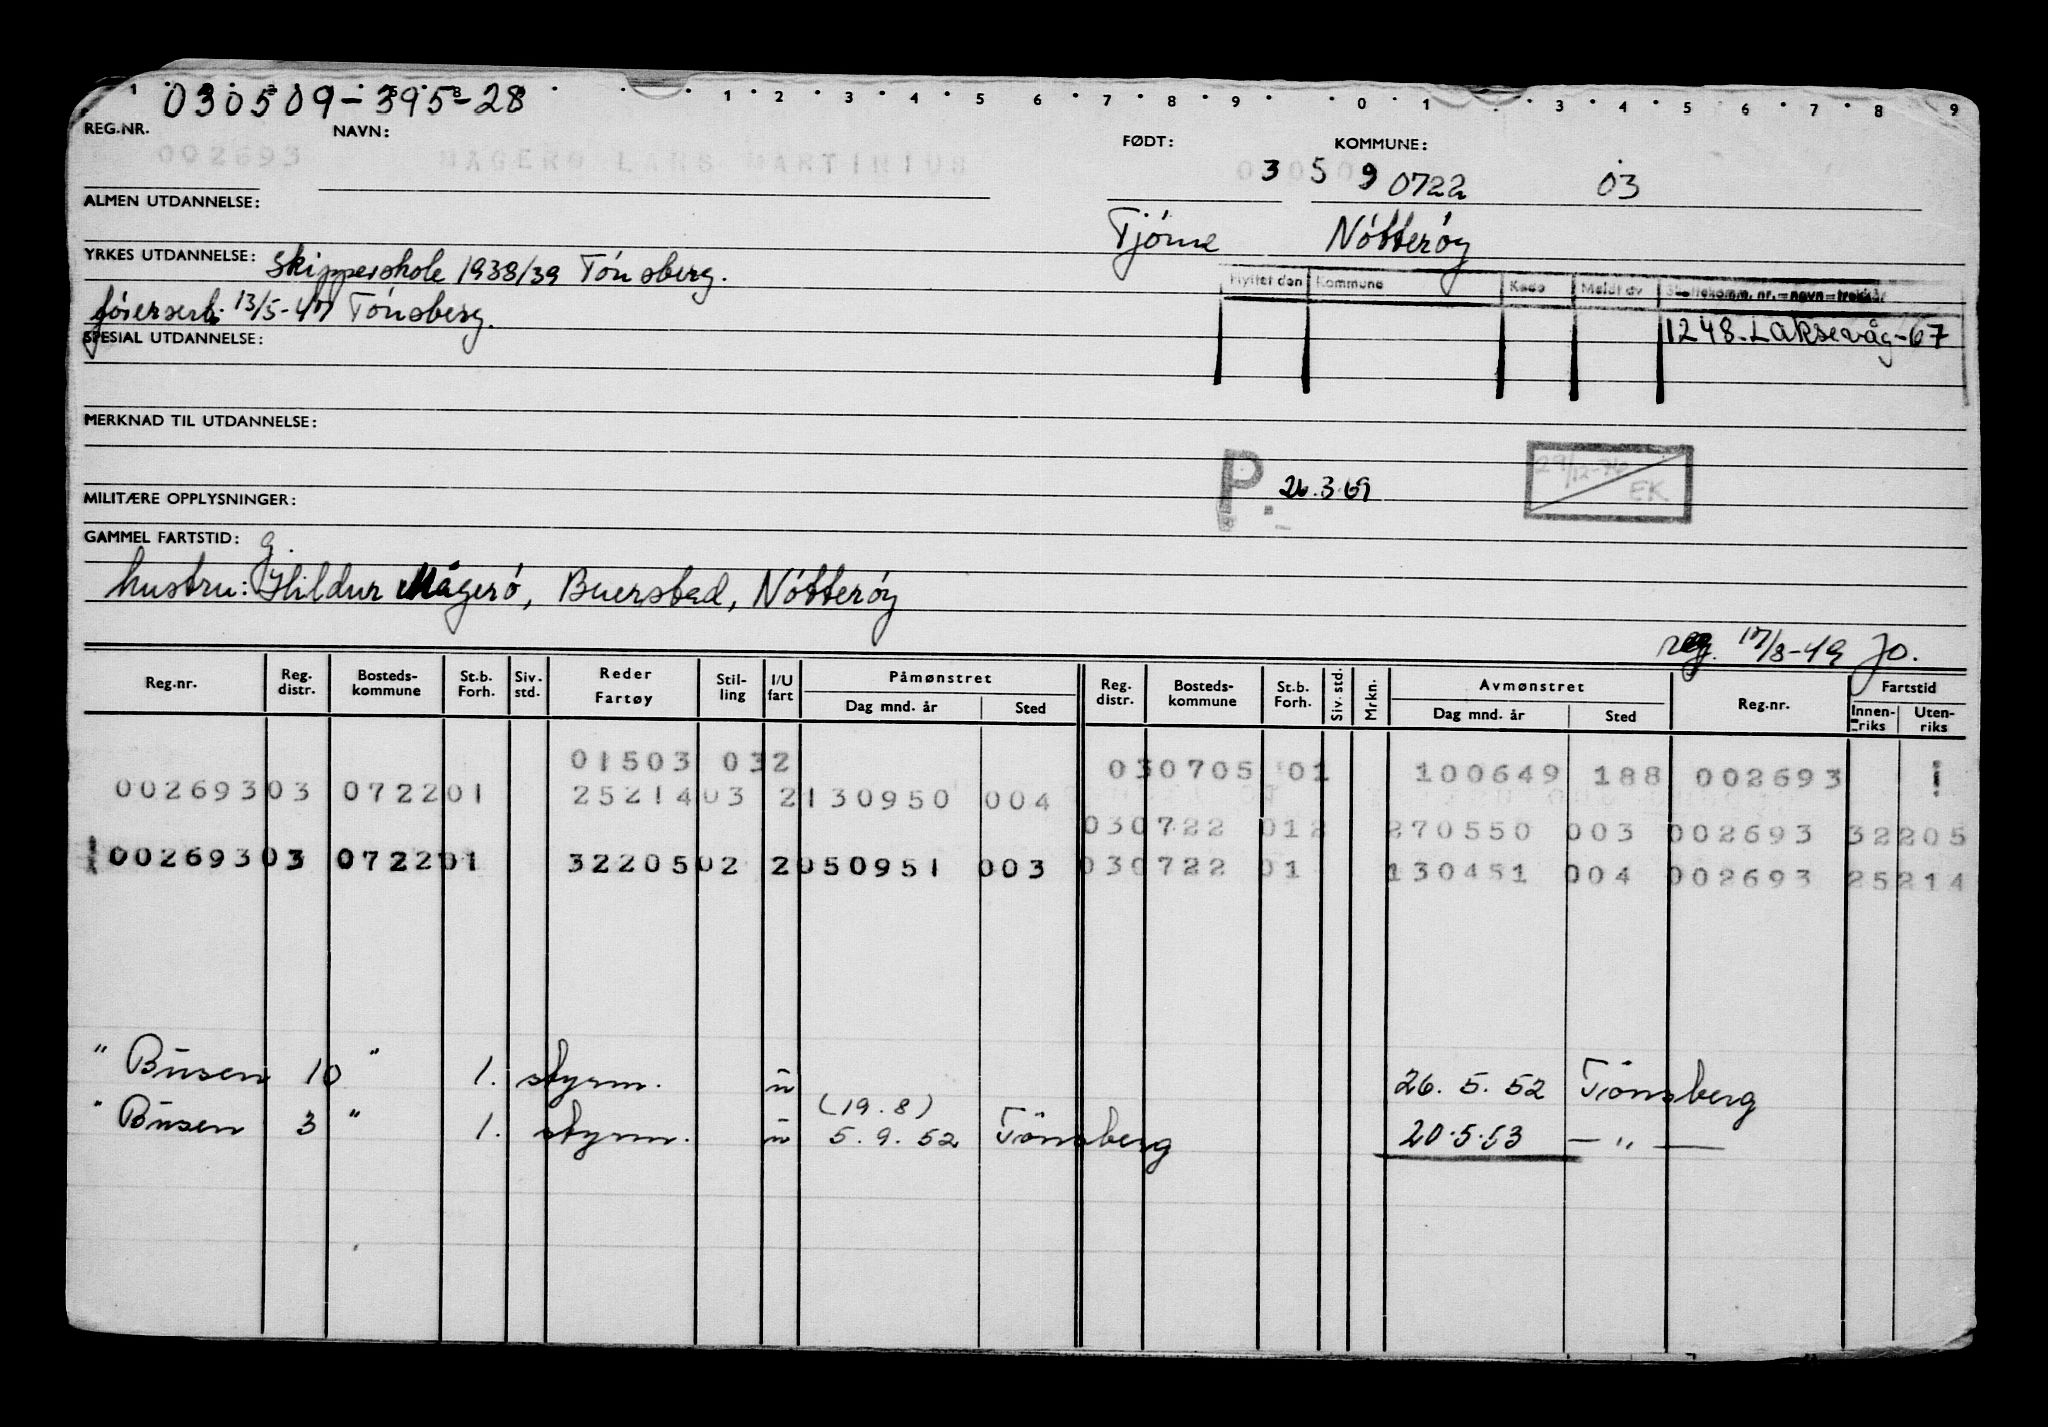 030509-395-28
1 2 3 4 5 6 7 8 9 0 1 3 4 5 6 7 8 9
REG.NR. NAVN: FØDT: KOMMUNE:
002693 MAGERØ LARS MARTINIUS 3 5 9 0722 03
ALMEN UTDANNELSE:
Tjöme Nötteröy
YRKES UTDANNELSE: Skipperskole 1938/39 Tönsberg.
Flyttet den Kommune Kode Meldt av Skattekomm. nr. - navn - trekkår
førersert. 13/5-47 Tönsberg.
1248-Laksevåg-67
SPESIAL UTDANNELSE:
MERKNAD TIL UTDANNELSE:
P. 26.3.69
29/12-76 EK
MILITÆRE OPPLYSNINGER:
GAMMEL FARTSTID: g.
hustru: Hildur Mågerö, Buerstad, Nötteröy
reg. 17/8-49 Jo.
Reg.nr. Reg. distr. Bosteds-kommune St.b. Forh. Siv. std. Reder Fartøy Stil-ling I/U fart Påmønstret Dag mnd. år Sted Reg. distr. Bosteds-kommune St.b. Forh. Siv. std. Mrkn. Avmønstret Dag mnd. år Sted Reg.nr. Fartstid Innen-riks Uten-riks
01503 032 030705 01 100649 188 002693
002693 03 0722 01 25214 03 2 130950 004
030722 012 270550 003 002693 32205
002693 03 0722 01 32205 02 2 050951 003 030722 01 130451 004 002693 25214
" Busen 10 " 1. styrm. u 26.5.52 Tönsberg
(19.8)
" Busen 3 " 1. styrm. u 5.9.52 Tönsberg 20.5.53 — " —